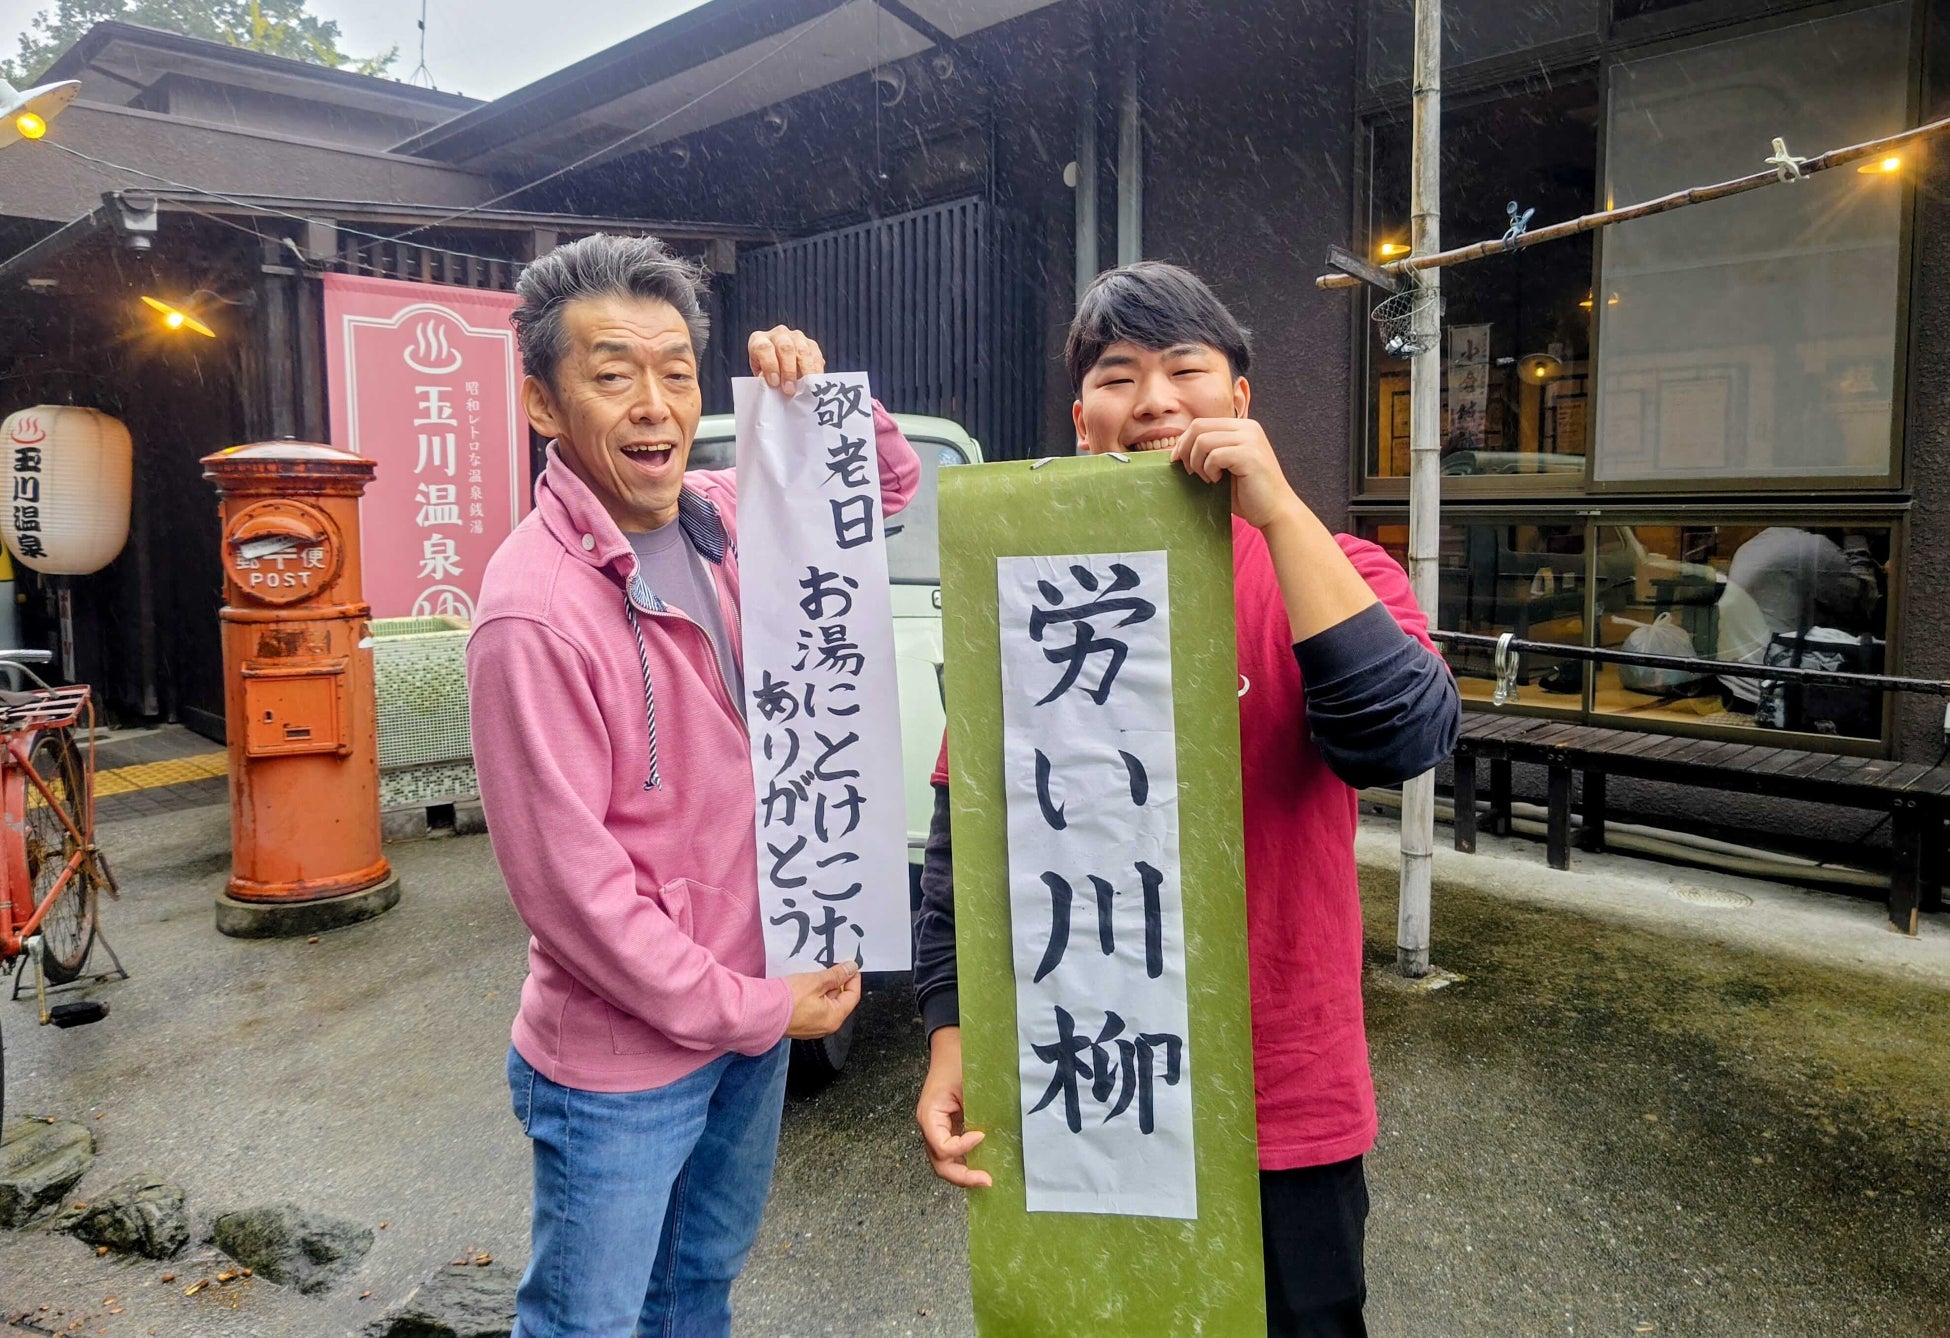 玉川温泉
昭和レトロな温泉銭湯
玉川温泉
郵便
POST
敬老日
お湯にとけこむ
ありがとう
労い川柳